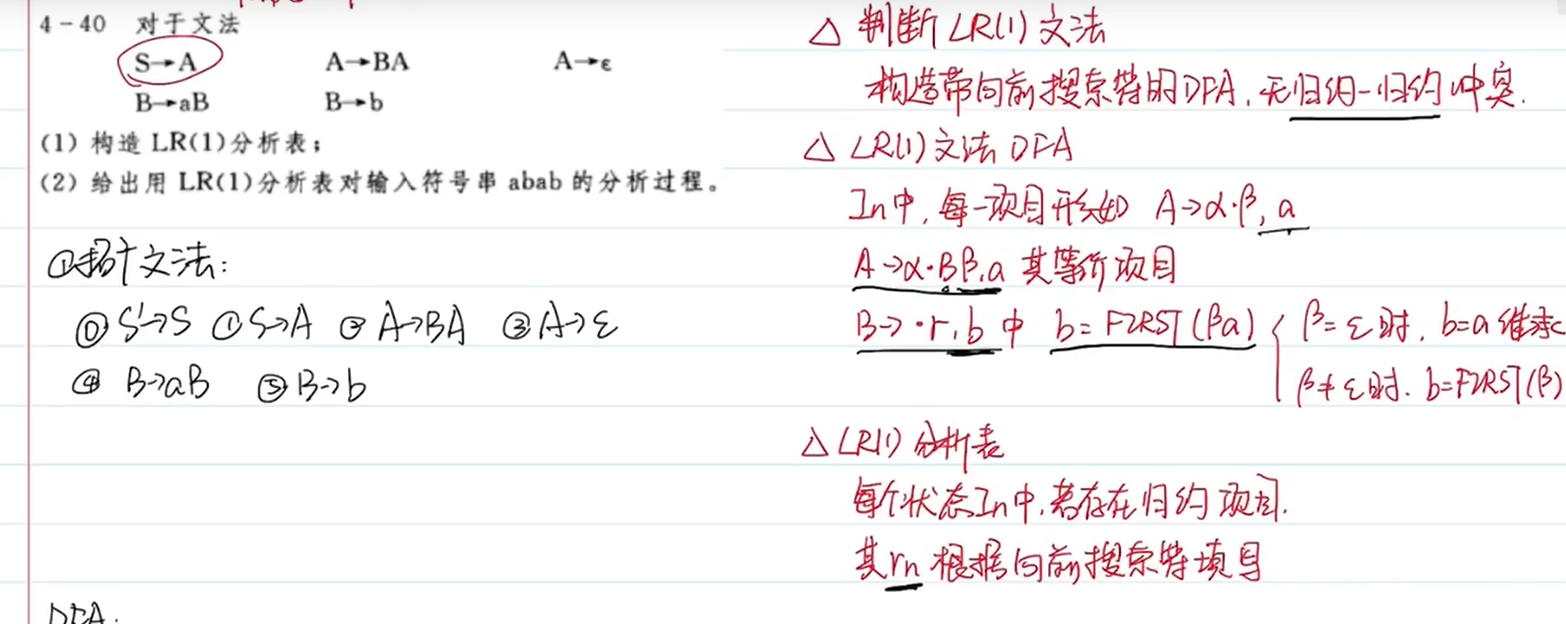 4-40 对于文法
S→A A→BA A→ε
B→aB B→b
(1) 构造 LR(1)分析表;
(2) 给出用 LR(1)分析表对输入符号串 abab 的分析过程。
①拓广文法:
⓪ S'→S ① S→A ② A→BA ③ A→ε
④ B→aB ⑤ B→b
DFA:
△ 判断 LR(1) 文法
构造带向前搜索符的DFA, 无归约-归约冲突.
△ LR(1)文法 DFA
In中, 每一项目形如 A→α·β, a
A→α·Bβ,a 其等价项目
B→·r,b 中 b=FIRST(βa) { β=ε时, b=a 继承
β≠ε时. b=FIRST(β)
△ LR(1) 分析表
每个状态In中,若存在归约项目.
其rn 根据向前搜索符填写